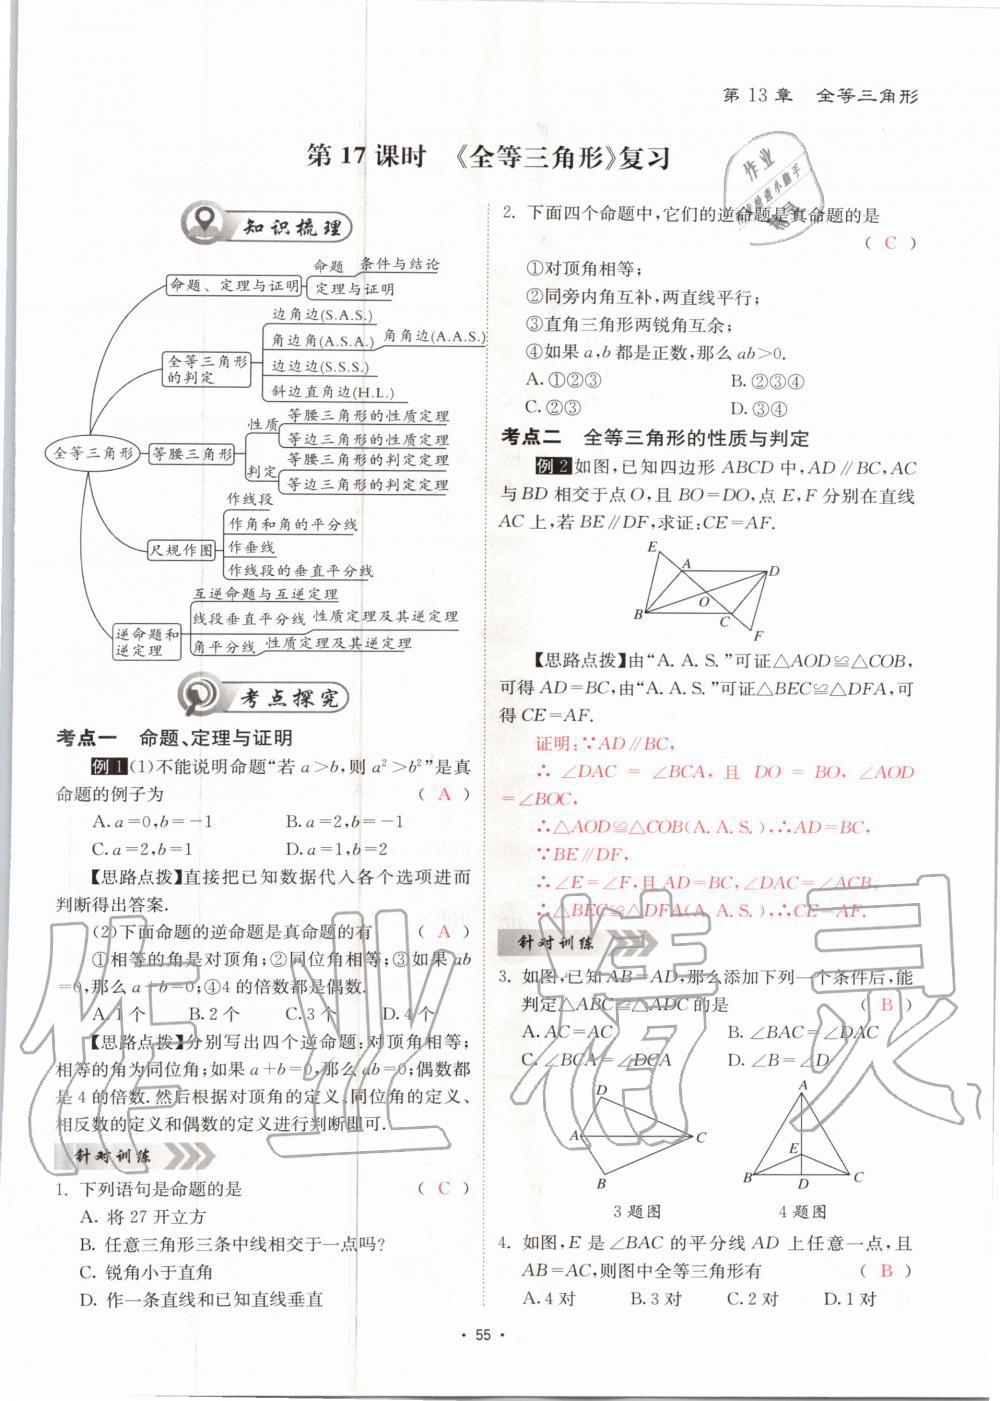 第 13 章　全等三角形
第 17 课时　《全等三角形》复习
作业
检查小助手
精灵
知识梳理
命题、定理与证明
命题
条件与结论
定理与证明
全等三角形
的判定
边角边(S.A.S.)
角边角(A.S.A.)
角角边(A.A.S.)
边边边(S.S.S.)
斜边直角边(H.L.)
全等三角形
等腰三角形
性质
等腰三角形的性质定理
等边三角形的性质定理
判定
等腰三角形的判定定理
等边三角形的判定定理
尺规作图
作线段
作角和角的平分线
作垂线
作线段的垂直平分线
逆命题和
逆定理
互逆命题与互逆定理
线段垂直平分线
性质定理及其逆定理
角平分线
性质定理及其逆定理
考点探究
考点一　命题、定理与证明
例1 (1)不能说明命题“若 a＞b,则 a²＞b²”是真
命题的例子为　( A )
A. a=0,b=-1　B. a=2,b=-1
C. a=2,b=1　D. a=1,b=2
【思路点拨】直接把已知数据代入各个选项进而
判断得出答案.
(2)下面命题的逆命题是真命题的有　( A )
①相等的角是对顶角;②同位角相等;③如果 ab
=0,那么 a+b=0;④4的倍数都是偶数.
A. 1 个　B. 2 个　C. 3 个　D. 4 个
【思路点拨】分别写出四个逆命题:对顶角相等;
相等的角为同位角;如果 a+b=0,那么 ab=0;偶数都
是 4 的倍数.然后根据对顶角的定义、同位角的定义、
相反数的定义和偶数的定义进行判断即可.
针对训练
1. 下列语句是命题的是　( C )
A. 将 27 开立方
B. 任意三角形三条中线相交于一点吗?
C. 锐角小于直角
D. 作一条直线和已知直线垂直
2. 下面四个命题中,它们的逆命题是真命题的是
( C )
①对顶角相等;
②同旁内角互补,两直线平行;
③直角三角形两锐角互余;
④如果 a,b 都是正数,那么 ab＞0.
A. ①②③　B. ②③④
C. ②③　D. ③④
考点二　全等三角形的性质与判定
例2 如图,已知四边形 ABCD 中,AD∥BC,AC
与 BD 相交于点 O,且 BO=DO,点 E,F 分别在直线
AC 上,若 BE∥DF,求证:CE=AF.
E
A
D
O
B
C
F
【思路点拨】由“A. A. S.”可证△AOD≌△COB,
可得 AD=BC,由“A. A. S.”可证△BEC≌△DFA,可
得 CE=AF.
证明:∵AD∥BC,
∴ ∠DAC = ∠BCA, 且 DO = BO, ∠AOD
=∠BOC,
∴△AOD≌△COB(A. A. S.),∴AD=BC,
∵BE∥DF,
∴∠E=∠F,且 AD=BC,∠DAC=∠ACB,
∴△BEC≌△DFA(A. A. S.),∴CE=AF.
针对训练
3. 如图,已知 AB=AD,那么添加下列一个条件后,能
判定△ABC≌△ADC 的是　( B )
A. AC=AC　B. ∠BAC=∠DAC
C. ∠BCA=∠DCA　D. ∠B=∠D
D
A
C
B
3 题图
A
E
B
D
C
4 题图
4. 如图,E 是∠BAC 的平分线 AD 上任意一点,且
AB=AC,则图中全等三角形有　( B )
A. 4 对　B. 3 对　C. 2 对　D. 1 对
• 55 •
作业精灵